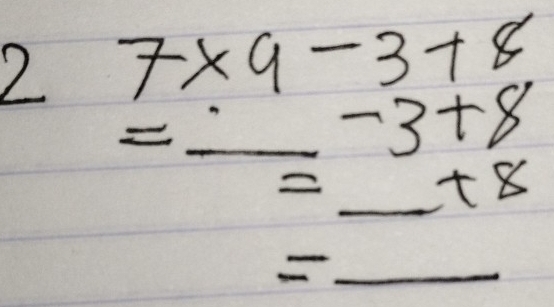 2 7×9-3+8
=___ -3+8
=___+8
=___